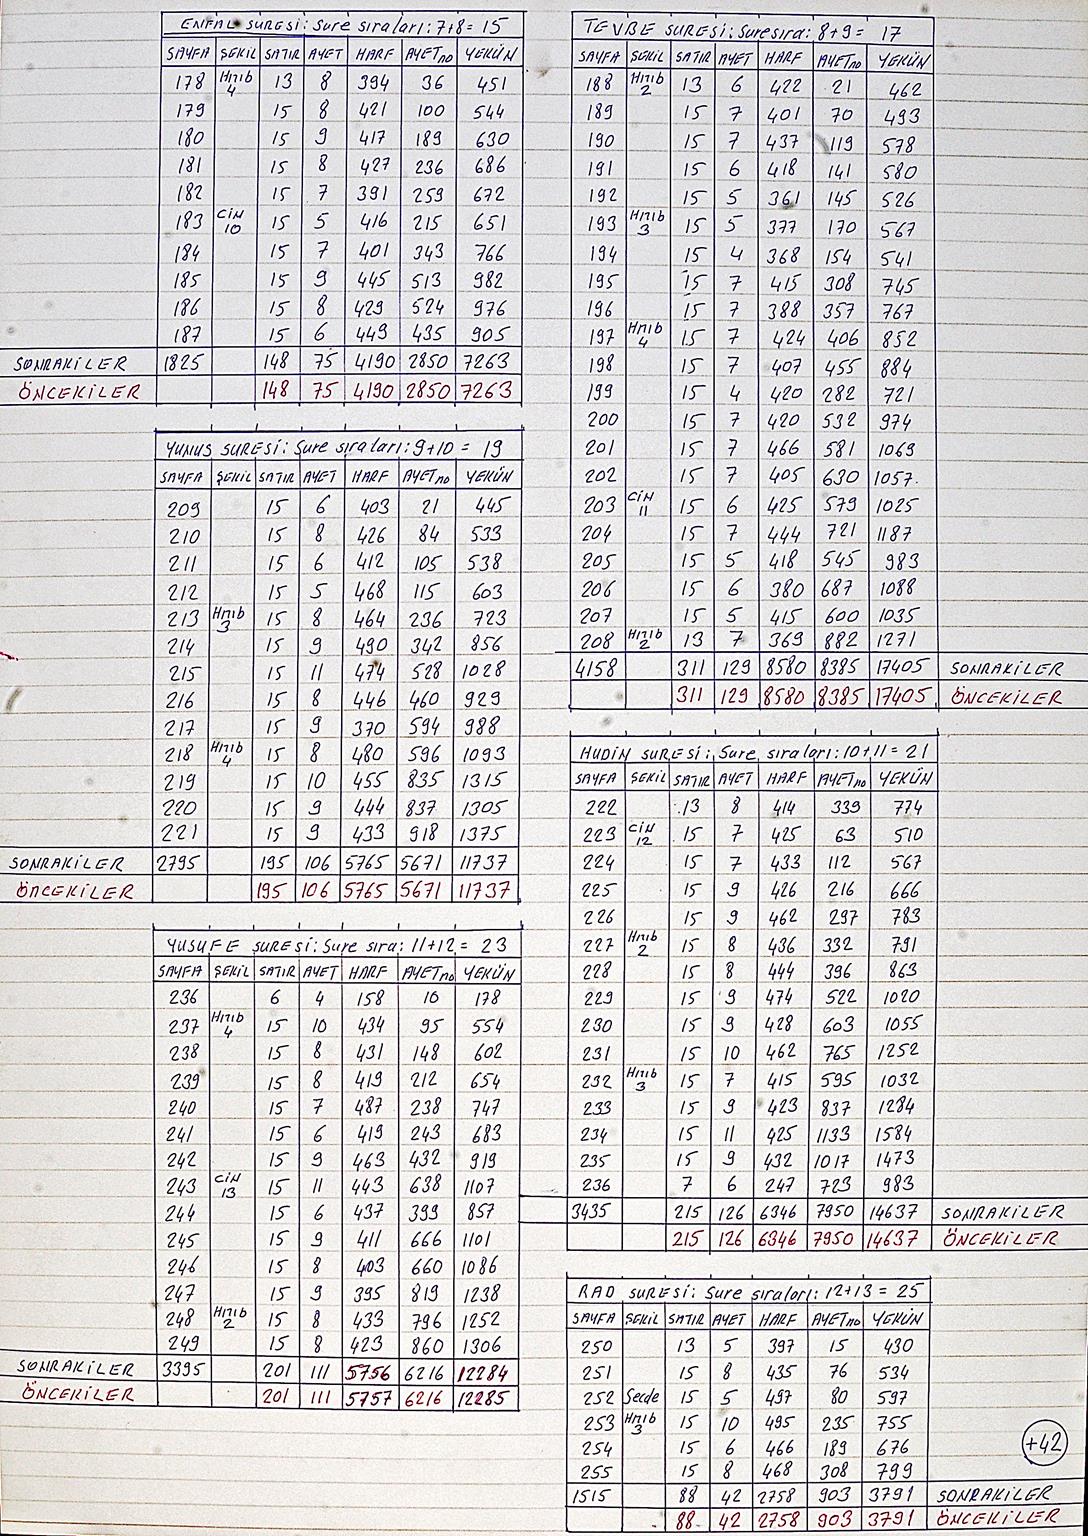 ENFAL SURESİ: Sure sıraları: 7+8= 15
SAYFA ŞEKİL SATIR AYET HARF AYET no YEKÜN
178 Hizib 4 13 8 394 36 451
179 15 8 421 100 544
180 15 9 417 189 630
181 15 8 427 236 686
182 15 7 391 259 672
183 CİN 10 15 5 416 215 651
184 15 7 401 343 766
185 15 9 445 513 982
186 15 8 429 524 976
187 15 6 449 435 905
SONRAKİLER 1825 148 75 4190 2850 7263
ÖNCEKİLER 148 75 4190 2850 7263
YUNUS SURESİ: Sure sıraları: 9+10= 19
SAYFA ŞEKİL SATIR AYET HARF AYET no YEKÜN
209 15 6 403 21 445
210 15 8 426 84 533
211 15 6 412 105 538
212 15 5 468 115 603
213 Hizib 3 15 8 464 236 723
214 15 9 490 342 856
215 15 11 474 528 1028
216 15 8 446 460 929
217 15 9 370 594 988
218 Hizib 4 15 8 480 596 1093
219 15 10 455 835 1315
220 15 9 444 837 1305
221 15 9 433 918 1375
SONRAKİLER 2795 195 106 5765 5671 11737
ÖNCEKİLER 195 106 5765 5671 11737
YUSUFE SURESİ: Sure sıra: 11+12= 23
SAYFA ŞEKİL SATIR AYET HARF AYET no YEKÜN
236 6 4 158 10 178
237 Hizib 4 15 10 434 95 554
238 15 8 431 148 602
239 15 8 419 212 654
240 15 7 487 238 747
241 15 6 419 243 683
242 15 9 463 432 919
243 CİN 13 15 11 443 638 1107
244 15 6 437 399 857
245 15 9 411 666 1101
246 15 8 403 660 1086
247 15 9 395 819 1238
248 Hizib 2 15 8 433 796 1252
249 15 8 423 860 1306
SONRAKİLER 3395 201 111 5756 6216 12284
ÖNCEKİLER 201 111 5757 6216 12285
TEVBE SURESİ: Suresıra: 8+9= 17
SAYFA ŞEKİL SATIR AYET HARF AYET no YEKÜN
188 Hizib 2 13 6 422 21 462
189 15 7 401 70 493
190 15 7 437 119 578
191 15 6 418 141 580
192 15 5 361 145 526
193 Hizib 3 15 5 377 170 567
194 15 4 368 154 541
195 15 7 415 308 745
196 15 7 388 357 767
197 Hizib 4 15 7 424 406 852
198 15 7 407 455 884
199 15 4 420 282 721
200 15 7 420 532 974
201 15 7 466 581 1069
202 15 7 405 630 1057
203 CİN 11 15 6 425 579 1025
204 15 7 444 721 1187
205 15 5 418 545 983
206 15 6 380 687 1088
207 15 5 415 600 1035
208 Hizib 2 13 7 369 882 1271
4158 311 129 8580 8385 17405 SONRAKİLER
311 129 8580 8385 17405 ÖNCEKİLER
HUDİN SURESİ: Sure sıraları: 10+11= 21
SAYFA ŞEKİL SATIR AYET HARF AYET no YEKÜN
222 13 8 414 339 774
223 CİN 12 15 7 425 63 510
224 15 7 433 112 567
225 15 9 426 216 666
226 15 9 462 297 783
227 Hizib 2 15 8 436 332 791
228 15 8 444 396 863
229 15 9 474 522 1020
230 15 9 428 603 1055
231 15 10 462 765 1252
232 Hizib 3 15 7 415 595 1032
233 15 9 423 837 1284
234 15 11 425 1133 1584
235 15 9 432 1017 1473
236 7 6 247 723 983
3435 215 126 6346 7950 14637 SONRAKİLER
215 126 6346 7950 14637 ÖNCEKİLER
RAD SURESİ: Sure sıraları: 12+13= 25
SAYFA ŞEKİL SATIR AYET HARF AYET no YEKÜN
250 13 5 397 15 430
251 15 8 435 76 534
252 Secde 15 5 497 80 597
253 Hizib 3 15 10 495 235 755
254 15 6 466 189 676
255 15 8 468 308 799
1515 88 42 2758 903 3791 SONRAKİLER
88 42 2758 903 3791 ÖNCEKİLER
+42